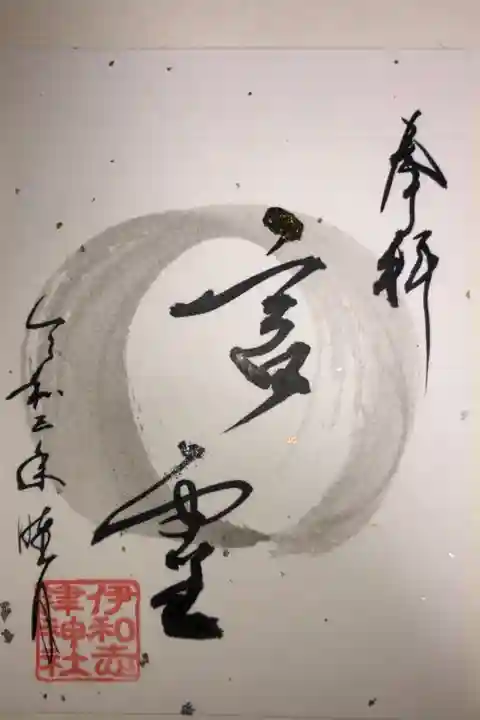 奉拝
言霊
令和三年睦月
伊和志
津神社